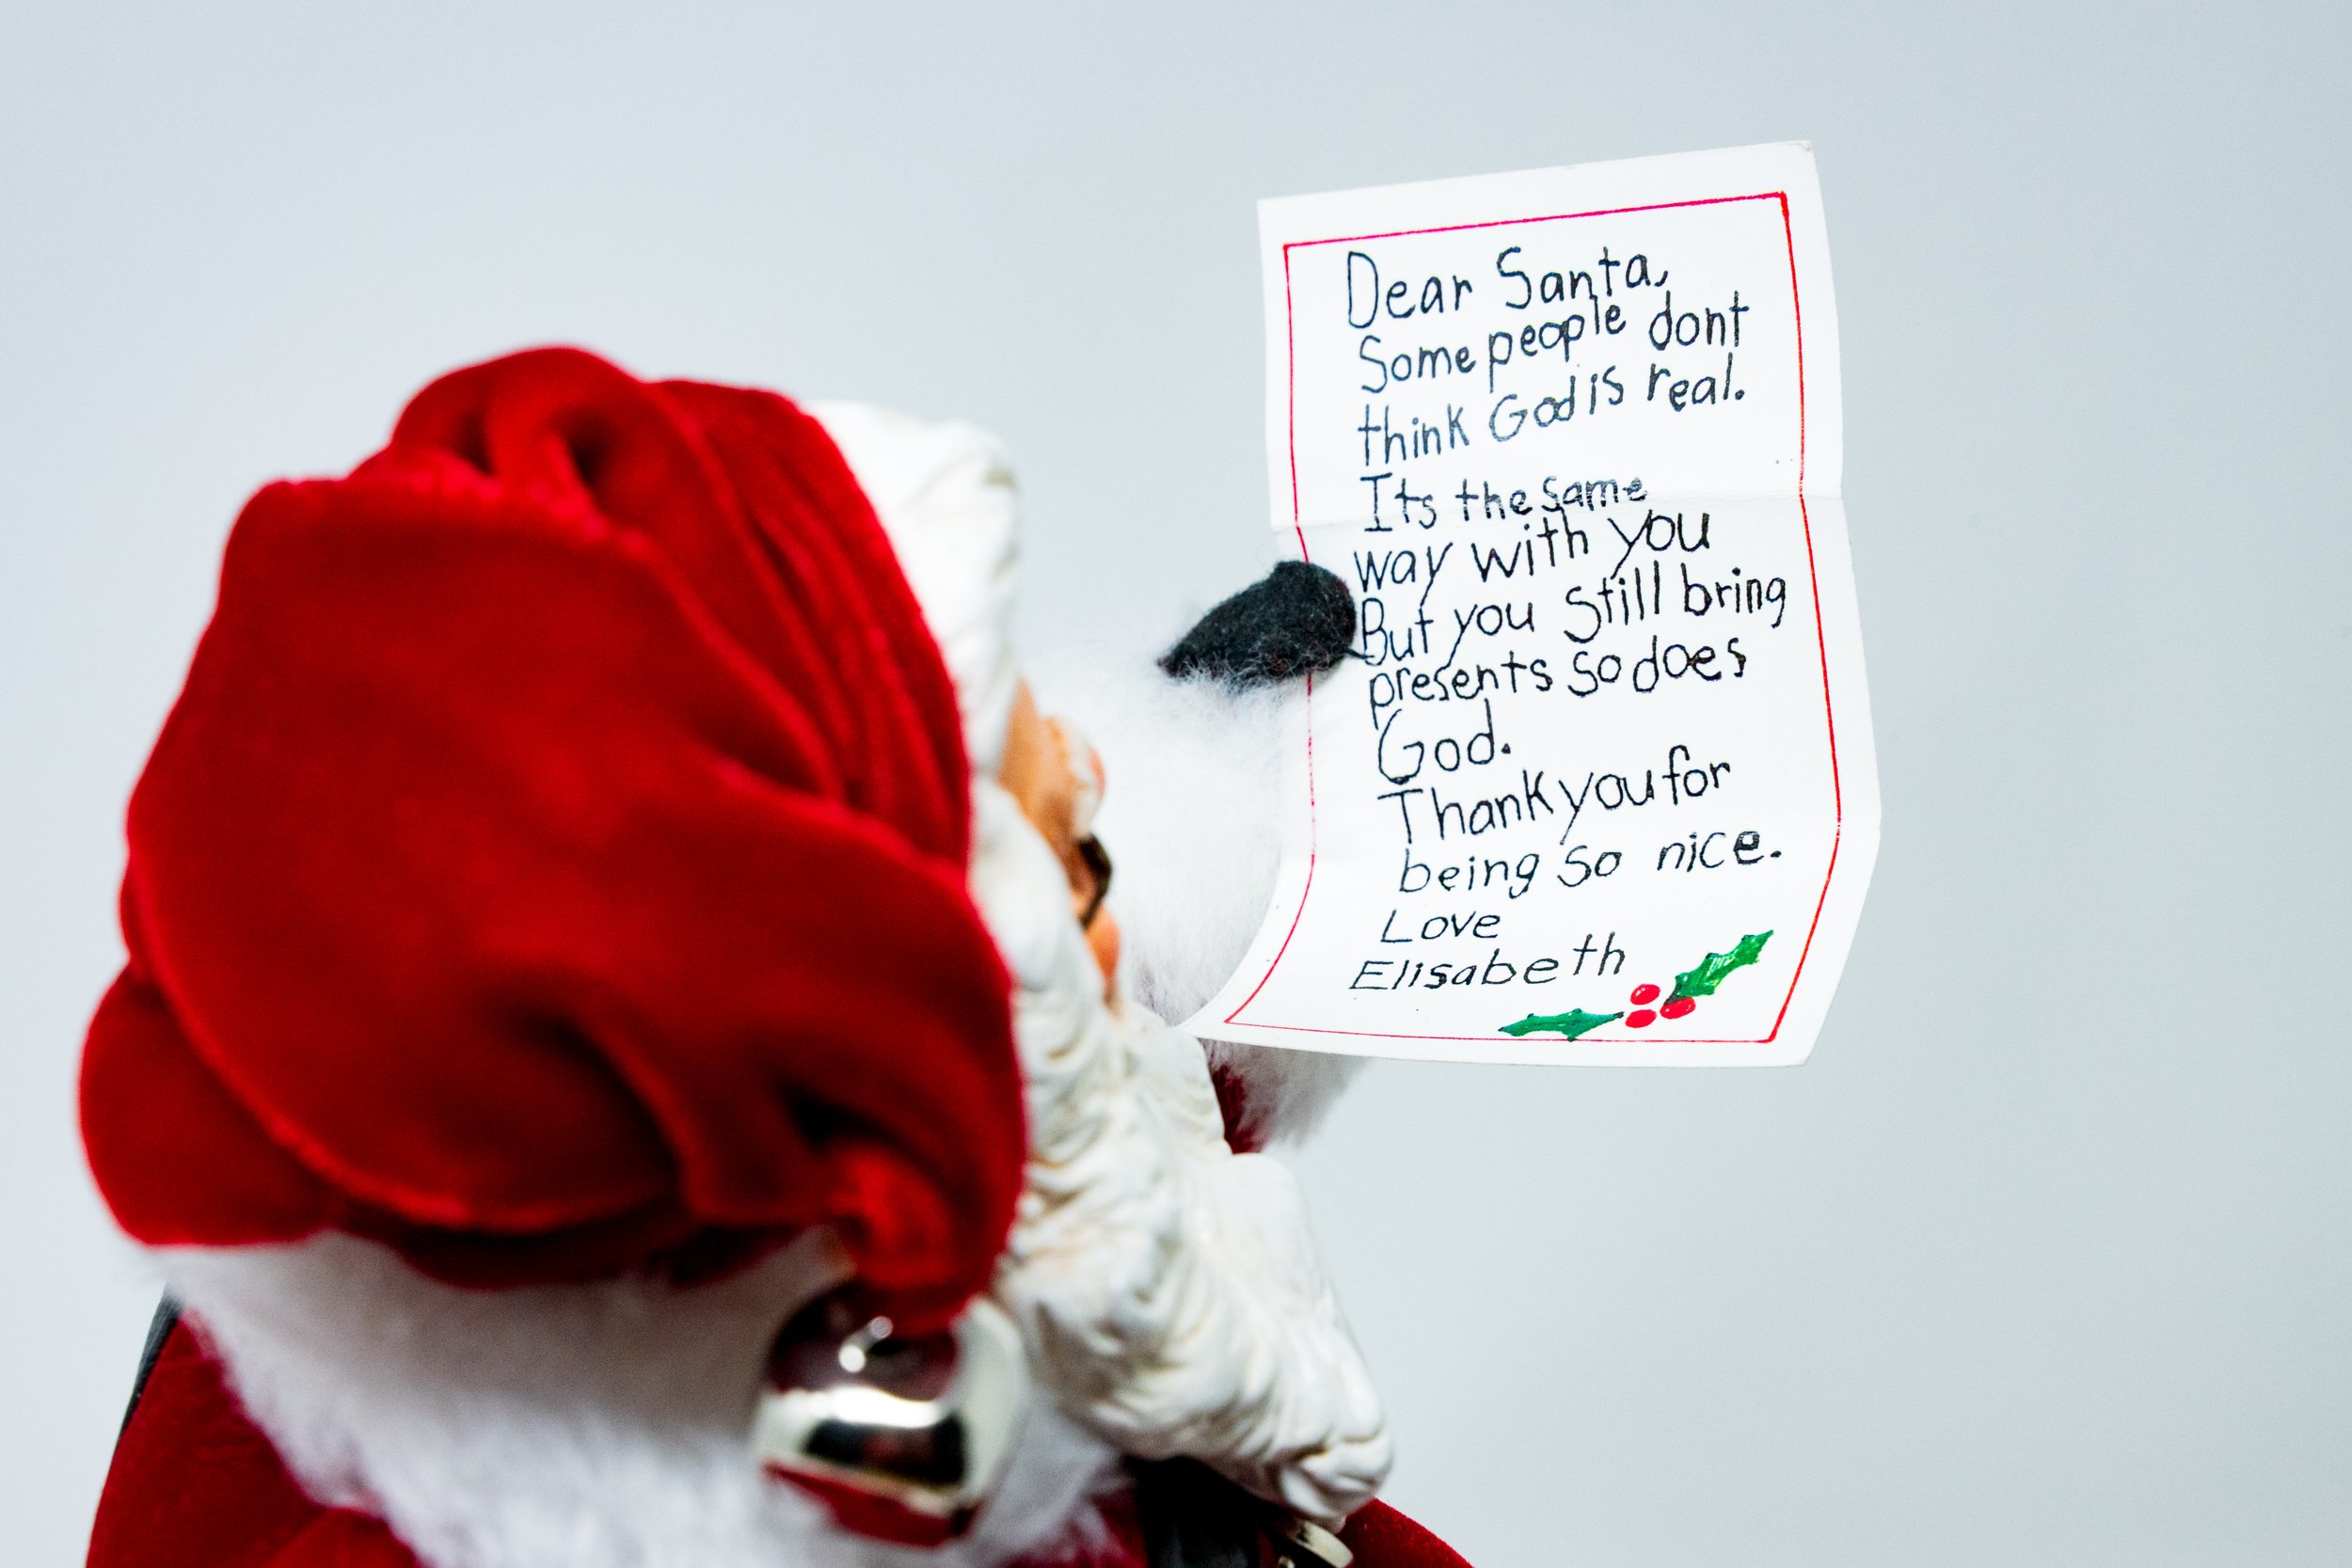 Dear Santa,
Some people dont
think God is real.
Its the same
way with you
But you still bring
presents so does
God.
Thank you for
being so nice.
Love
Elisabeth